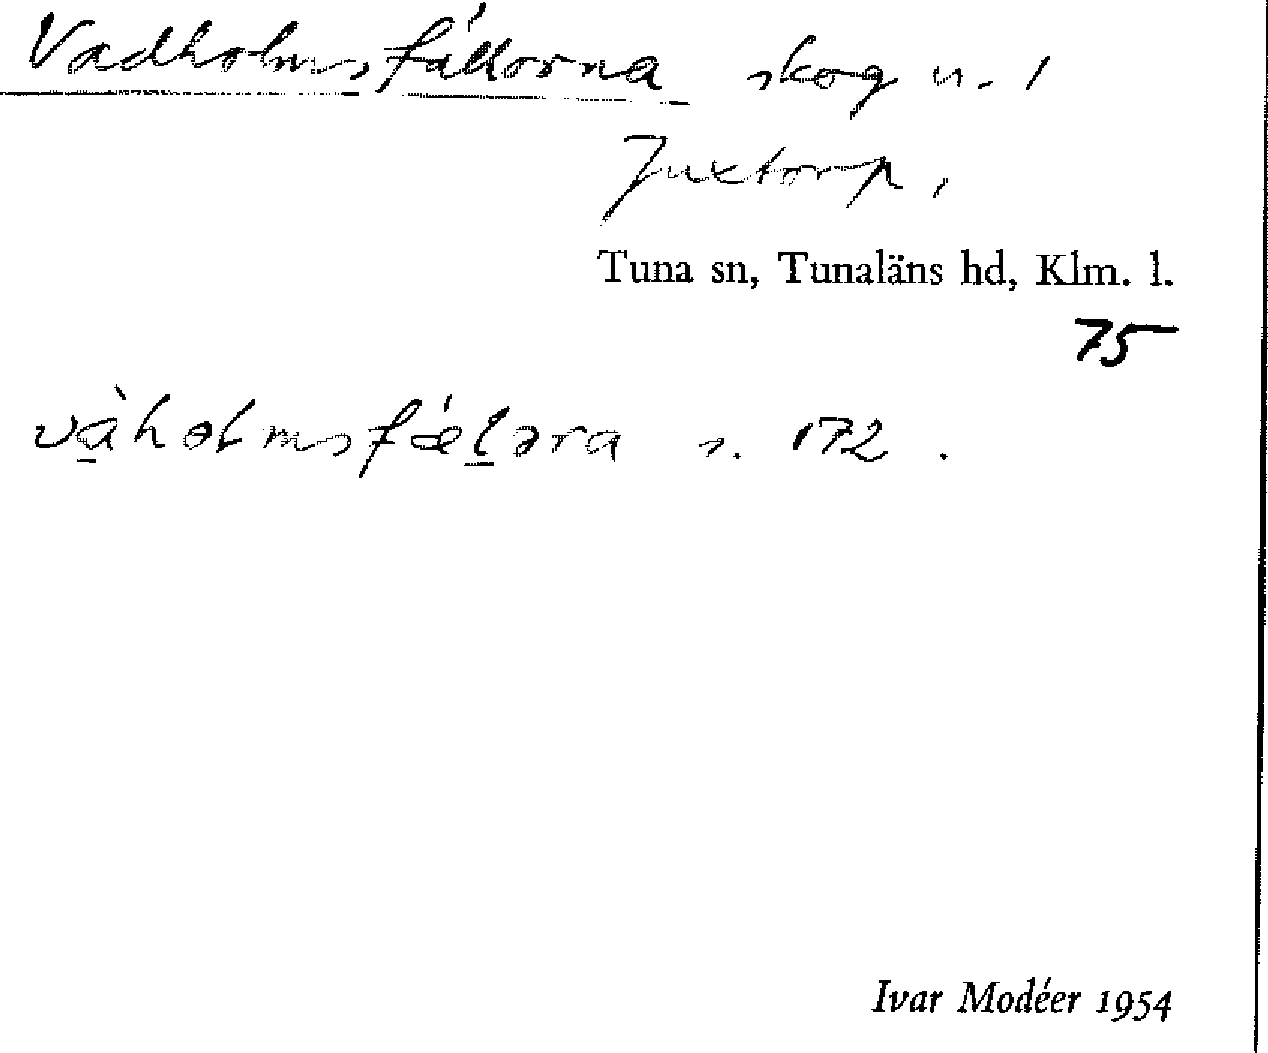 Vadholmsfällorna skog n. 1
Juxtorp,
Tuna sn, Tunaläns hd, Klm. l.
75
và̱hobmsfǽḻəra s. 172.
Ivar Modéer 1954